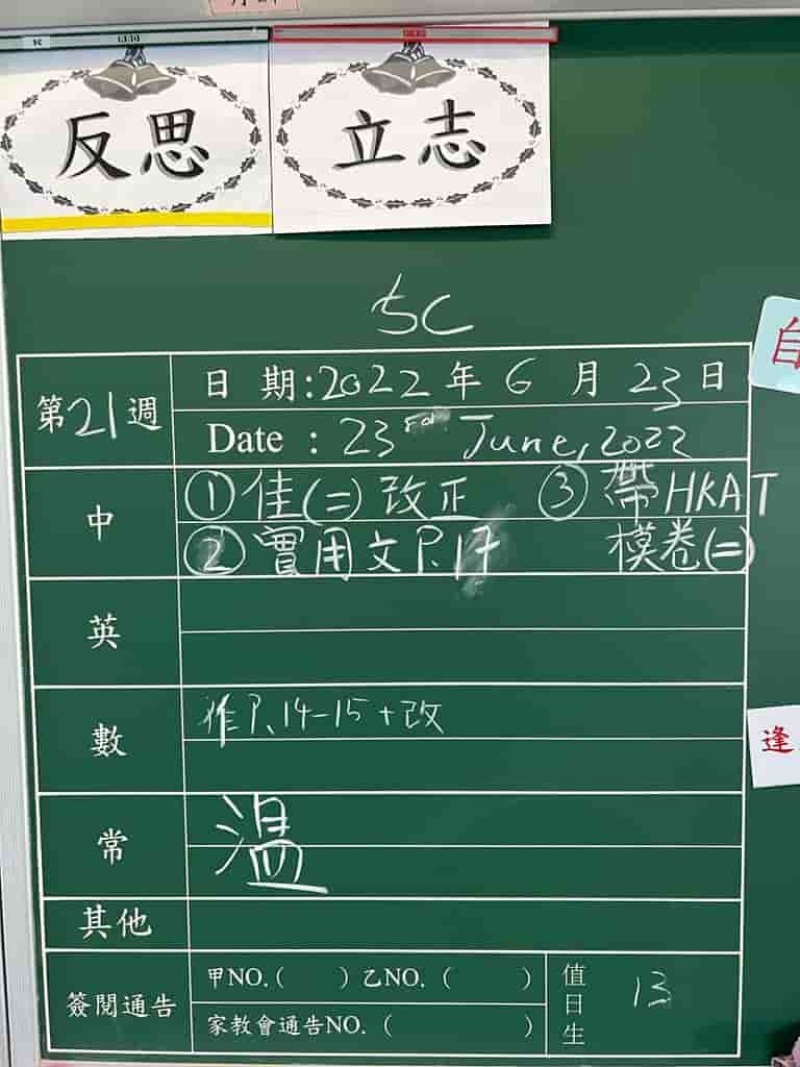 反思
立志
5C
第21週
日 期:2022年 6 月 23日
Date : 23rd June, 2022
中
①佳(二)改正 ③帶HKAT
②實用文P.17 模卷(二)
英
數
P.14-15+改
常
溫
其他
簽閱通告
甲NO.( )乙NO.( )
家教會通告NO.( )
值日生
13
自
逢